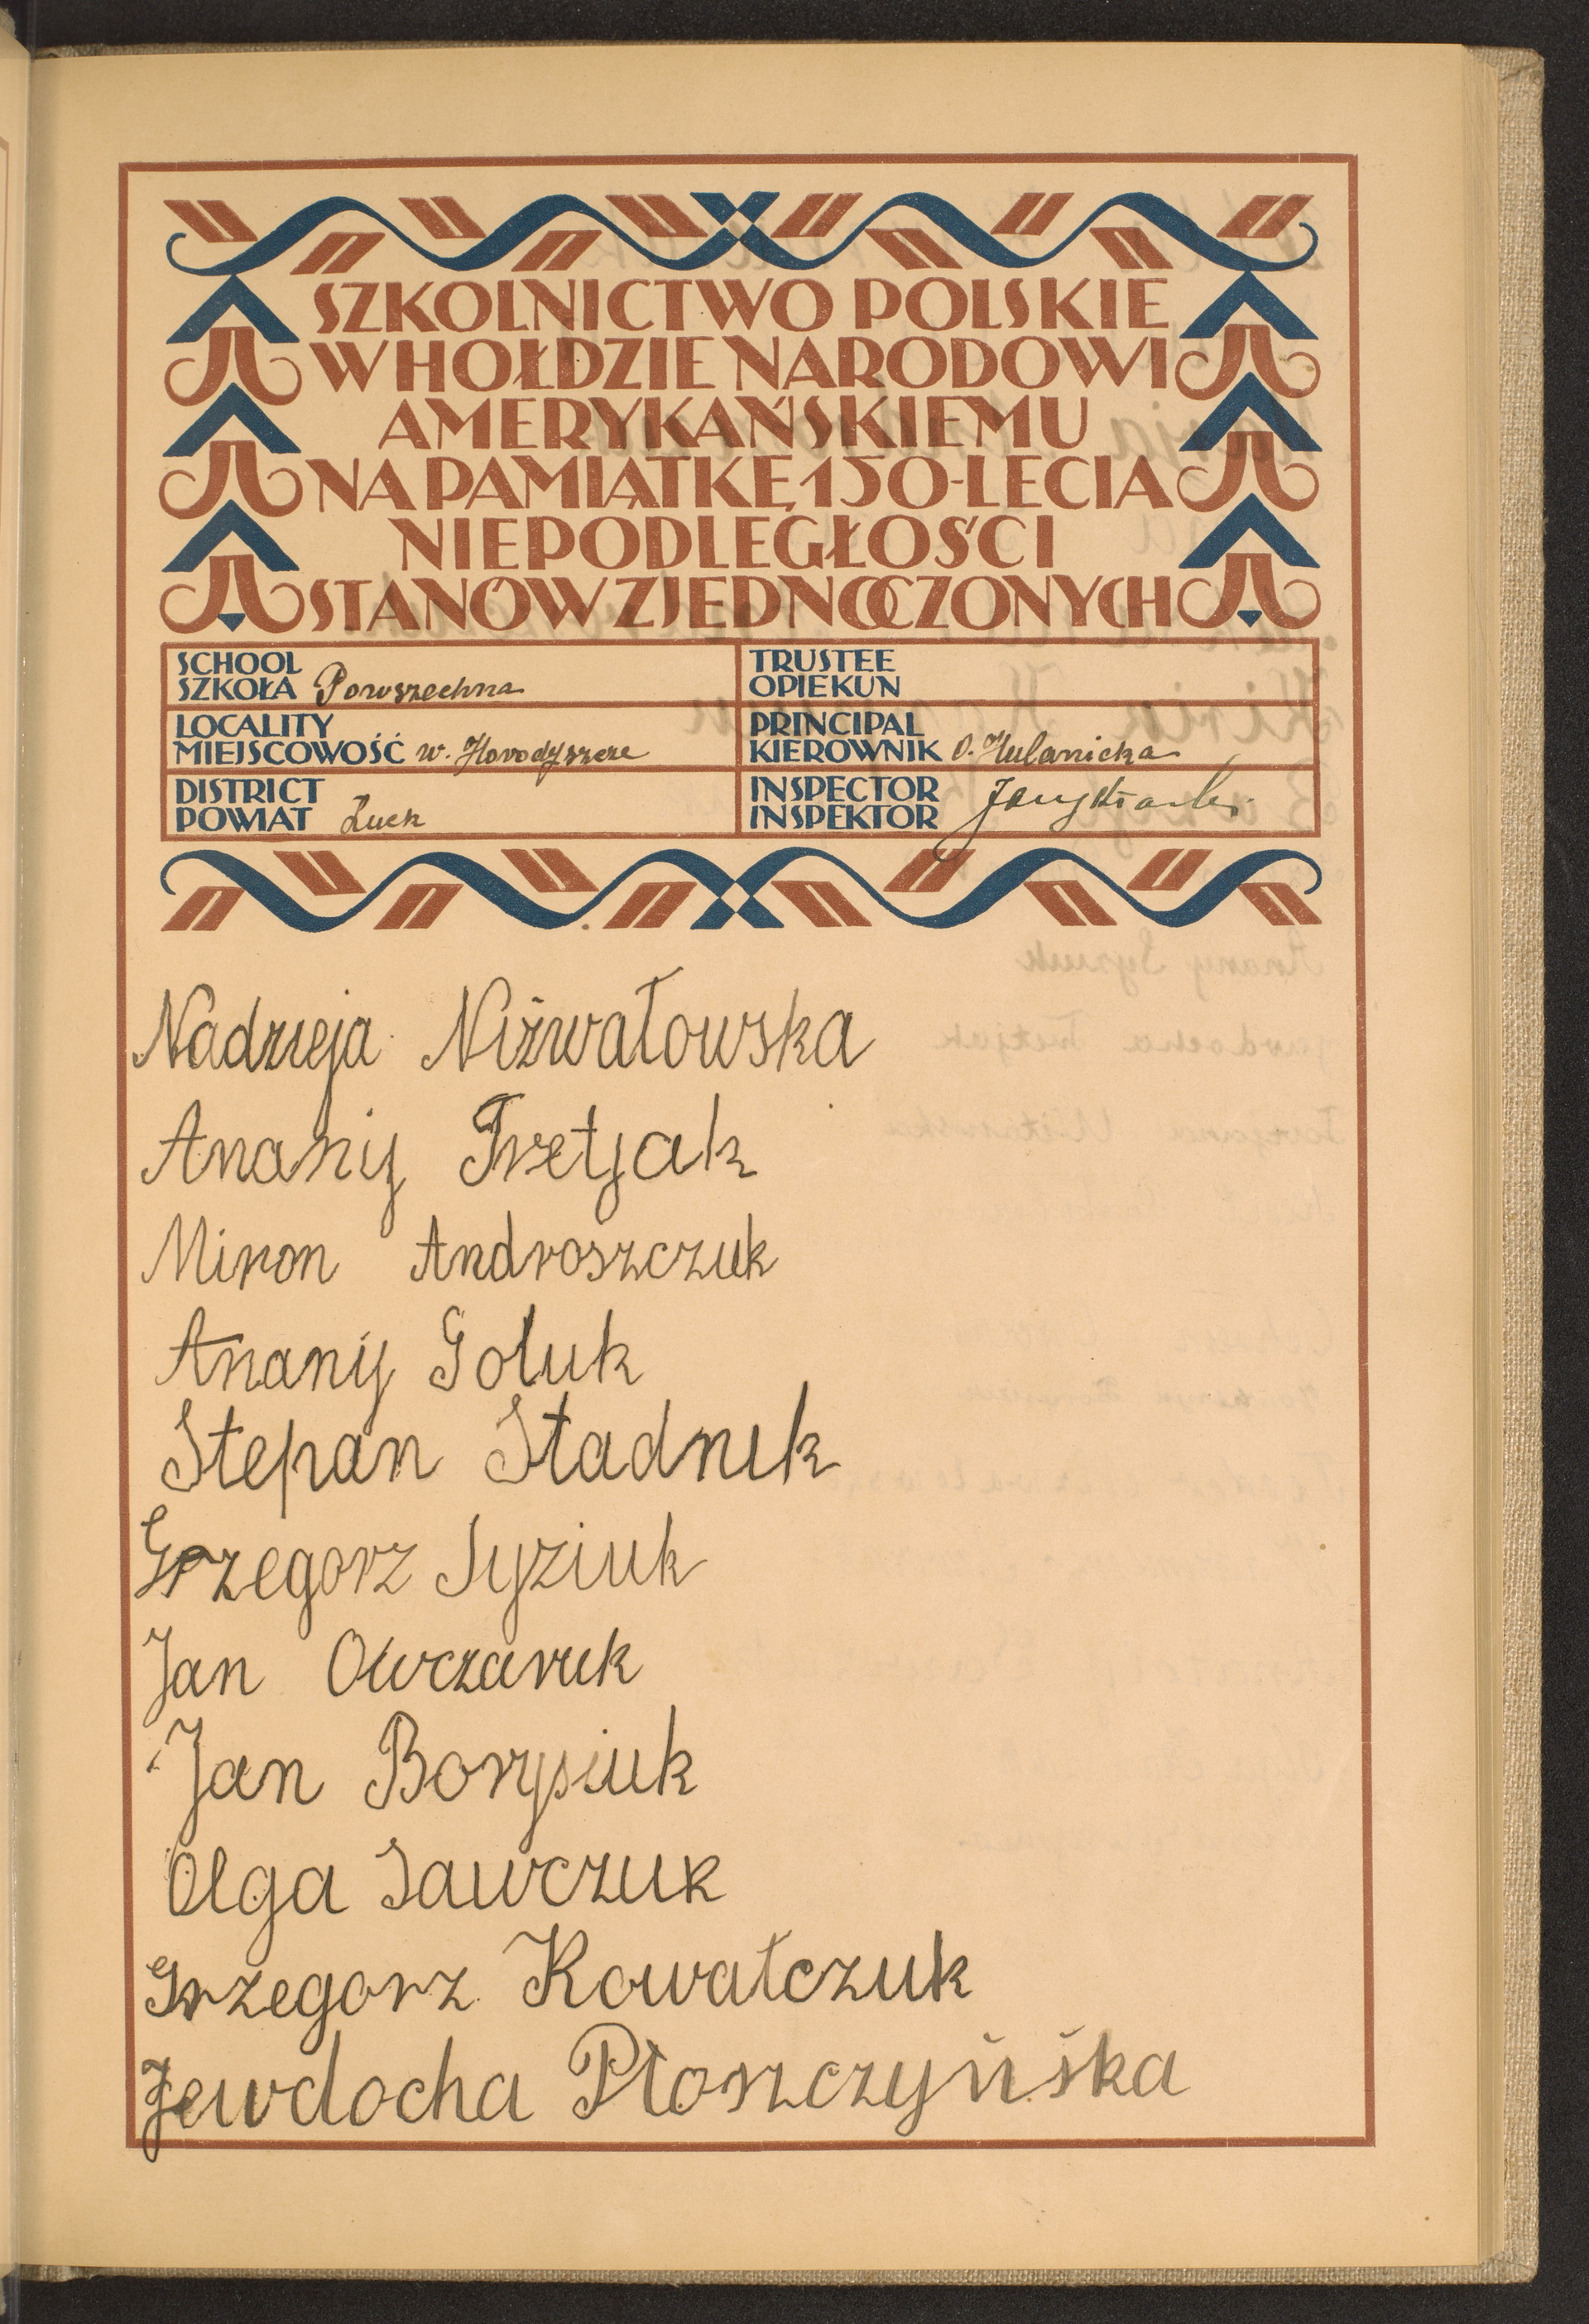 SZKOLNICTWO POLSKIE
W HOŁDZIE NARODOWI
AMERYKAŃSKIEMU
NA PAMIĄTKĘ 150-LECIA
NIEPODLEGŁOŚCI
STANÓW ZJEDNOCZONYCH
SCHOOL
SZKOŁA Powszechna
TRUSTEE
OPIEKUN
LOCALITY
MIEJSCOWOŚĆ w. Horodyszcze
PRINCIPAL
KIEROWNIK O. Hulanicka
DISTRICT
POWIAT Łuck
INSPECTOR
INSPEKTOR
Nadzieja Niżwałowska
Ananij Tretjak
Miron Androszczuk
Ananij Goluk
Stepan Stadnik
Grzegorz Syziuk
Jan Owczaruk
Jan Borysiuk
Olga Sawczuk
Grzegorz Kowalczuk
Jewdocha Płoszczyńska